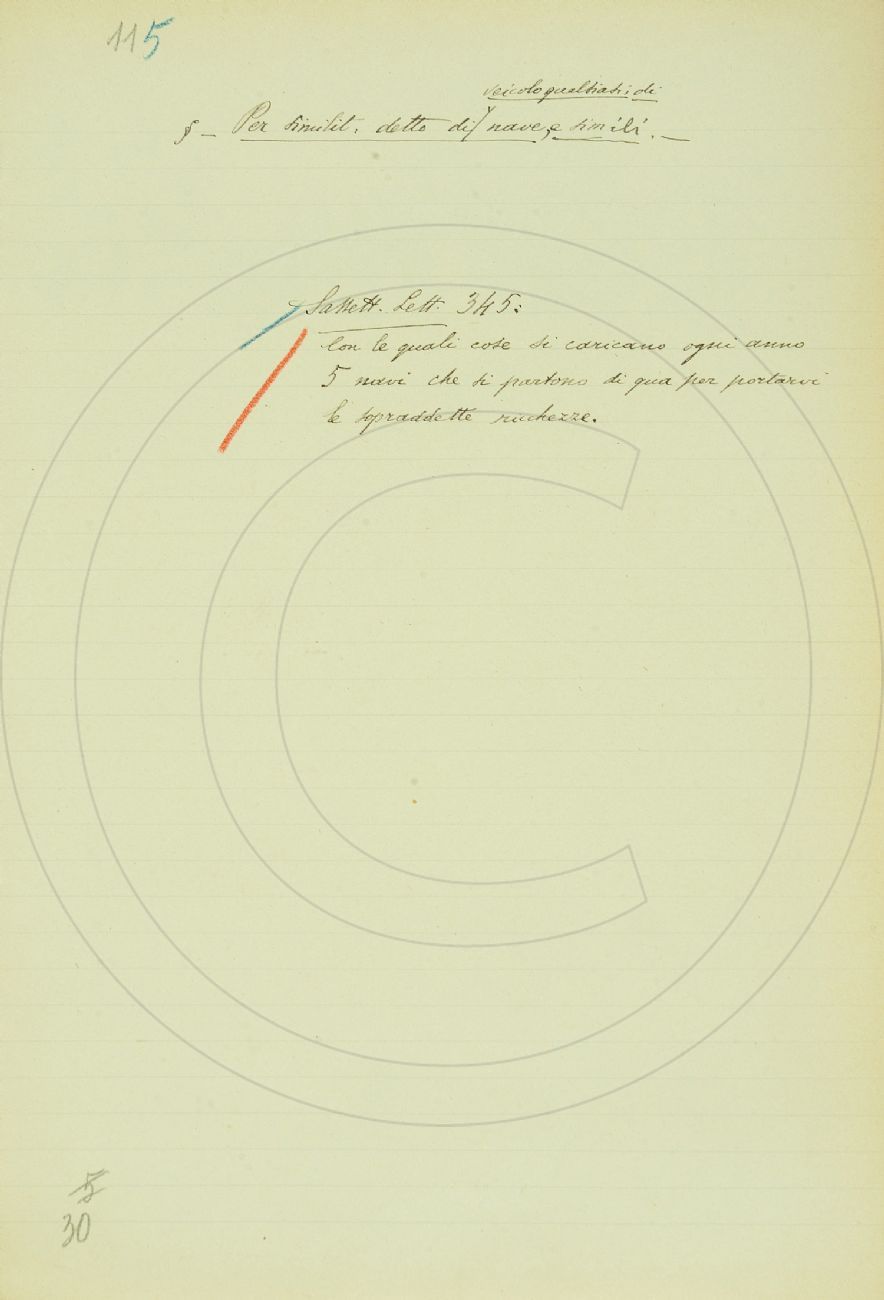 115
veicolo qualsiasi di
§ – Per similit. detto di nave, e simili. –
Sassett. Lett. 345:
Con le quali cose si caricano ogni anno
5 navi che si partono di qua per portarvi
le sopraddette ricchezze.
5
30